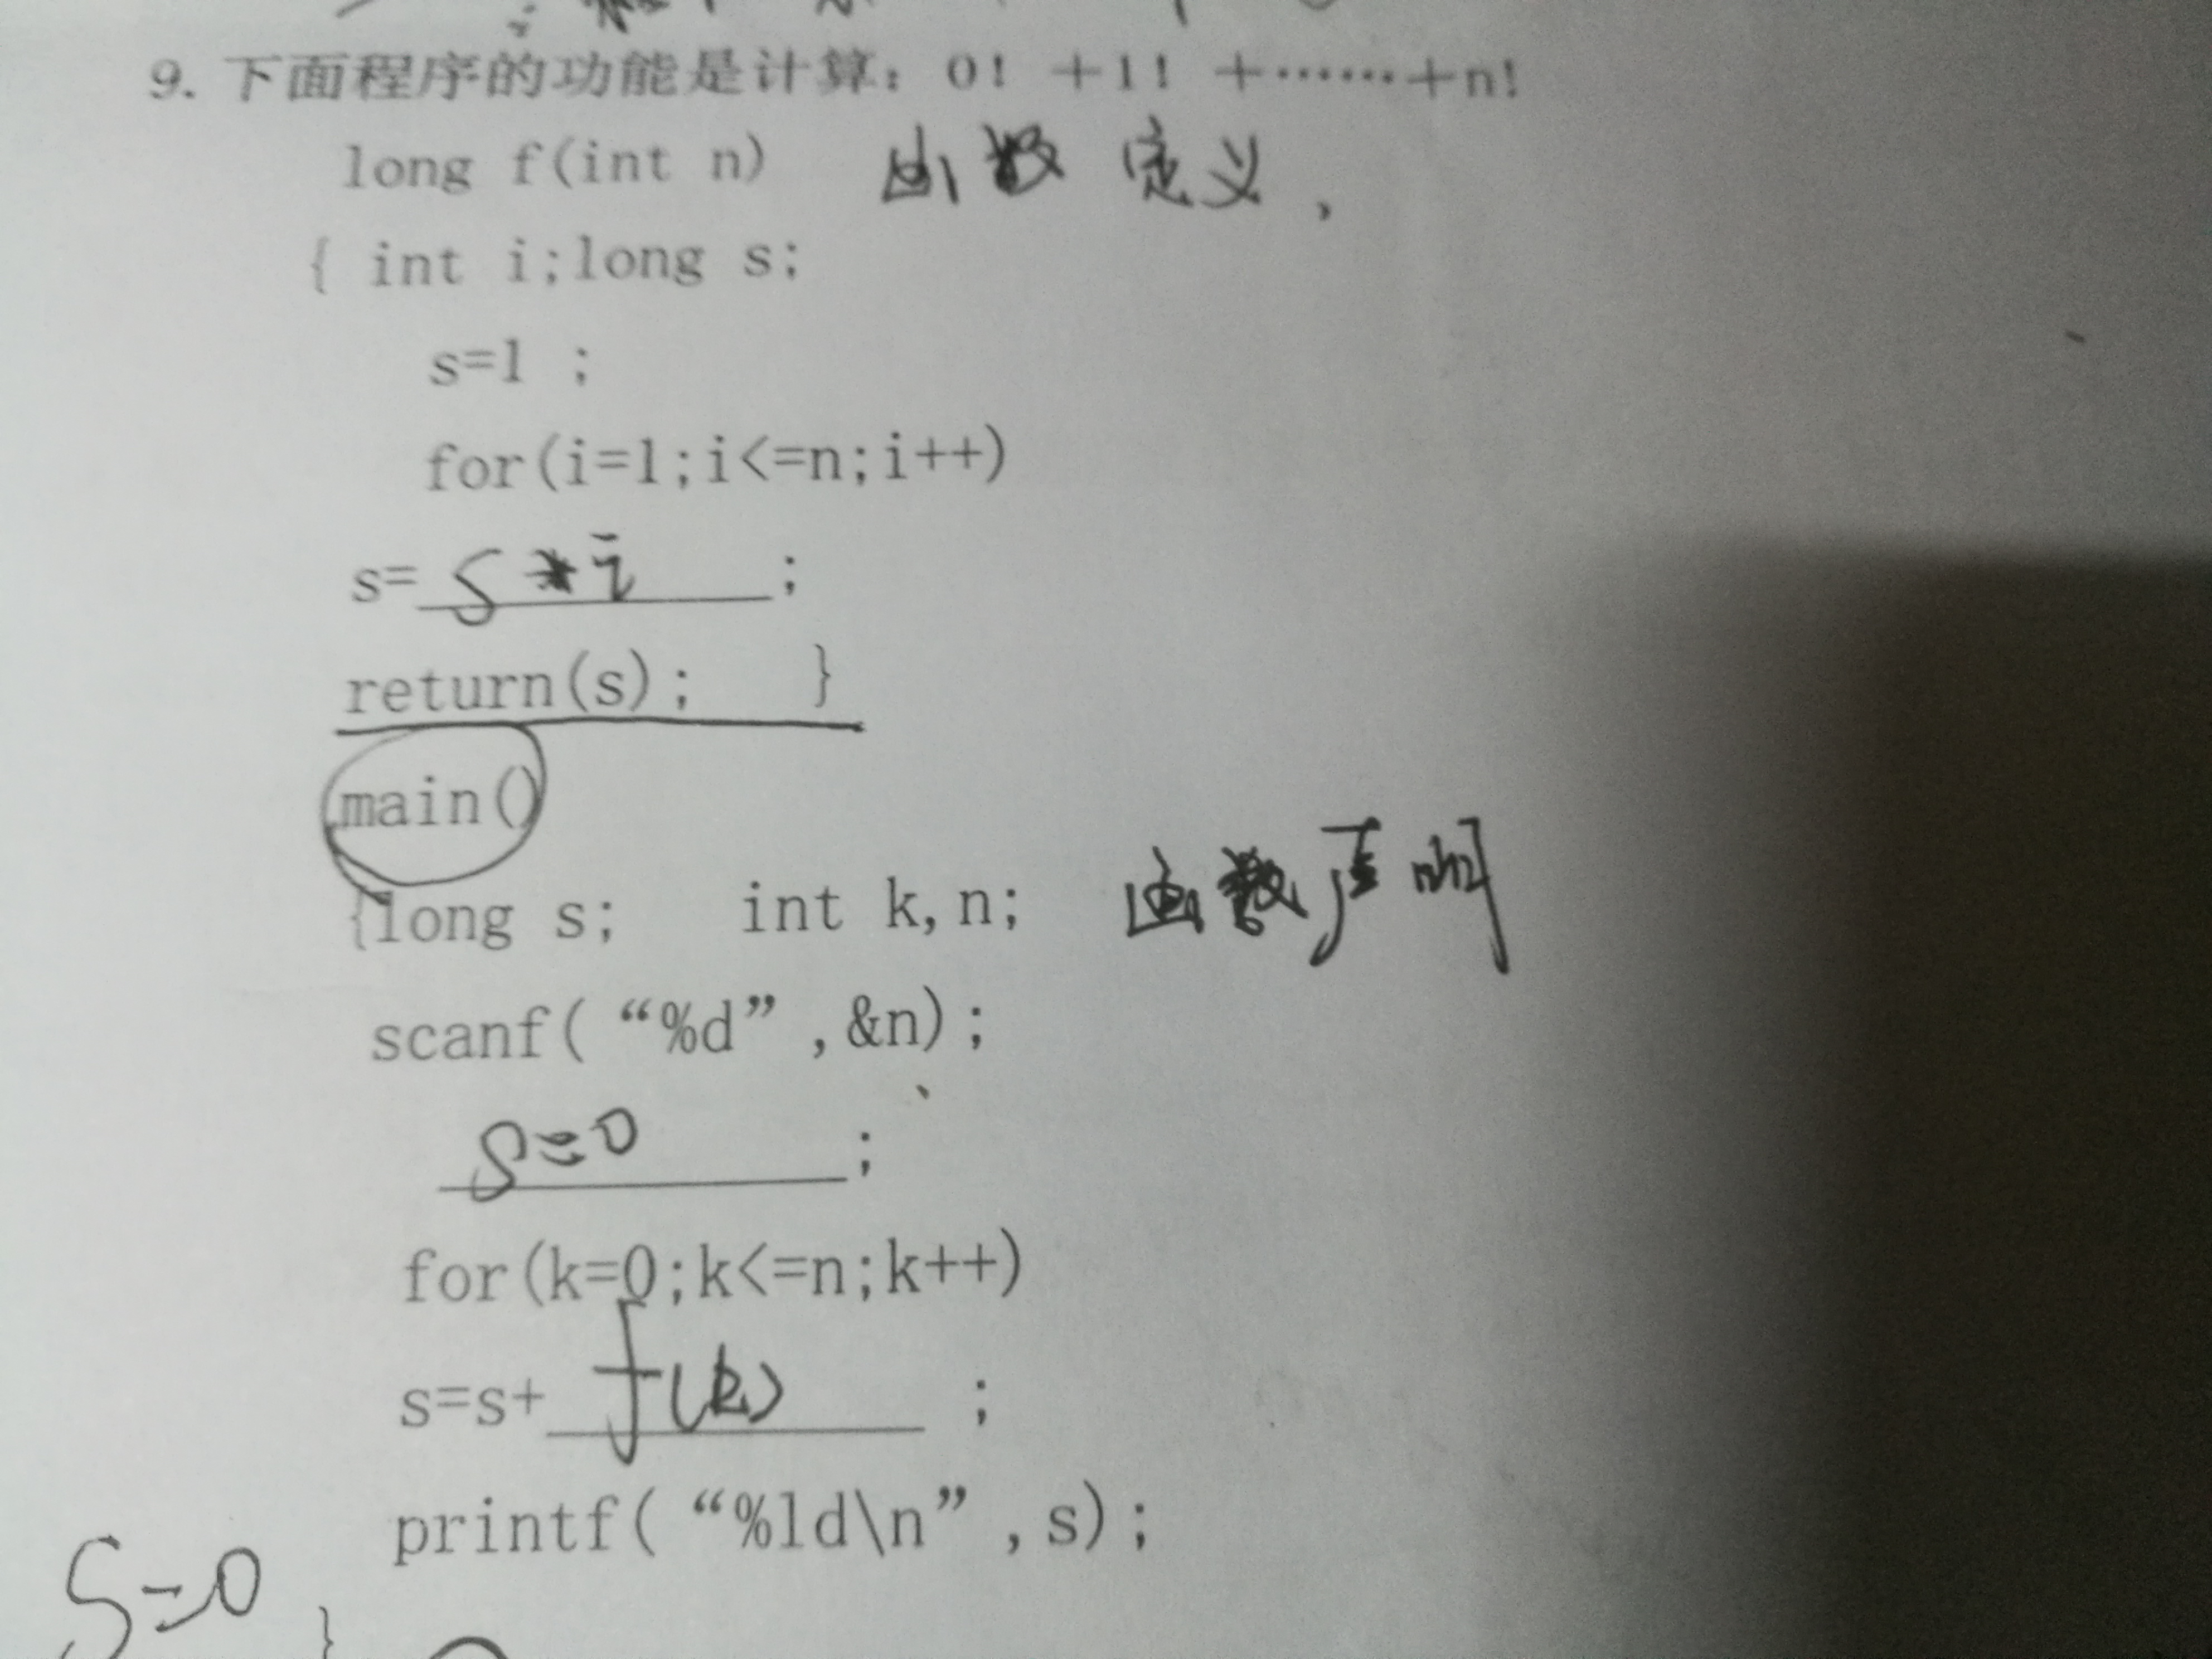 9. 下面程序的功能是计算：0！+1！+……+n!
long f(int n) 函数定义，
{ int i;long s;
s=1 ;
for(i=1;i<=n;i++)
s= s*i ;
return(s); }
main()
{long s; int k,n; 函数声明
scanf( “%d” ,&n);
s=0 ;
for(k=0;k<=n;k++)
s=s+ f(k) ;
printf( “%ld\n” ,s);
s=0
}